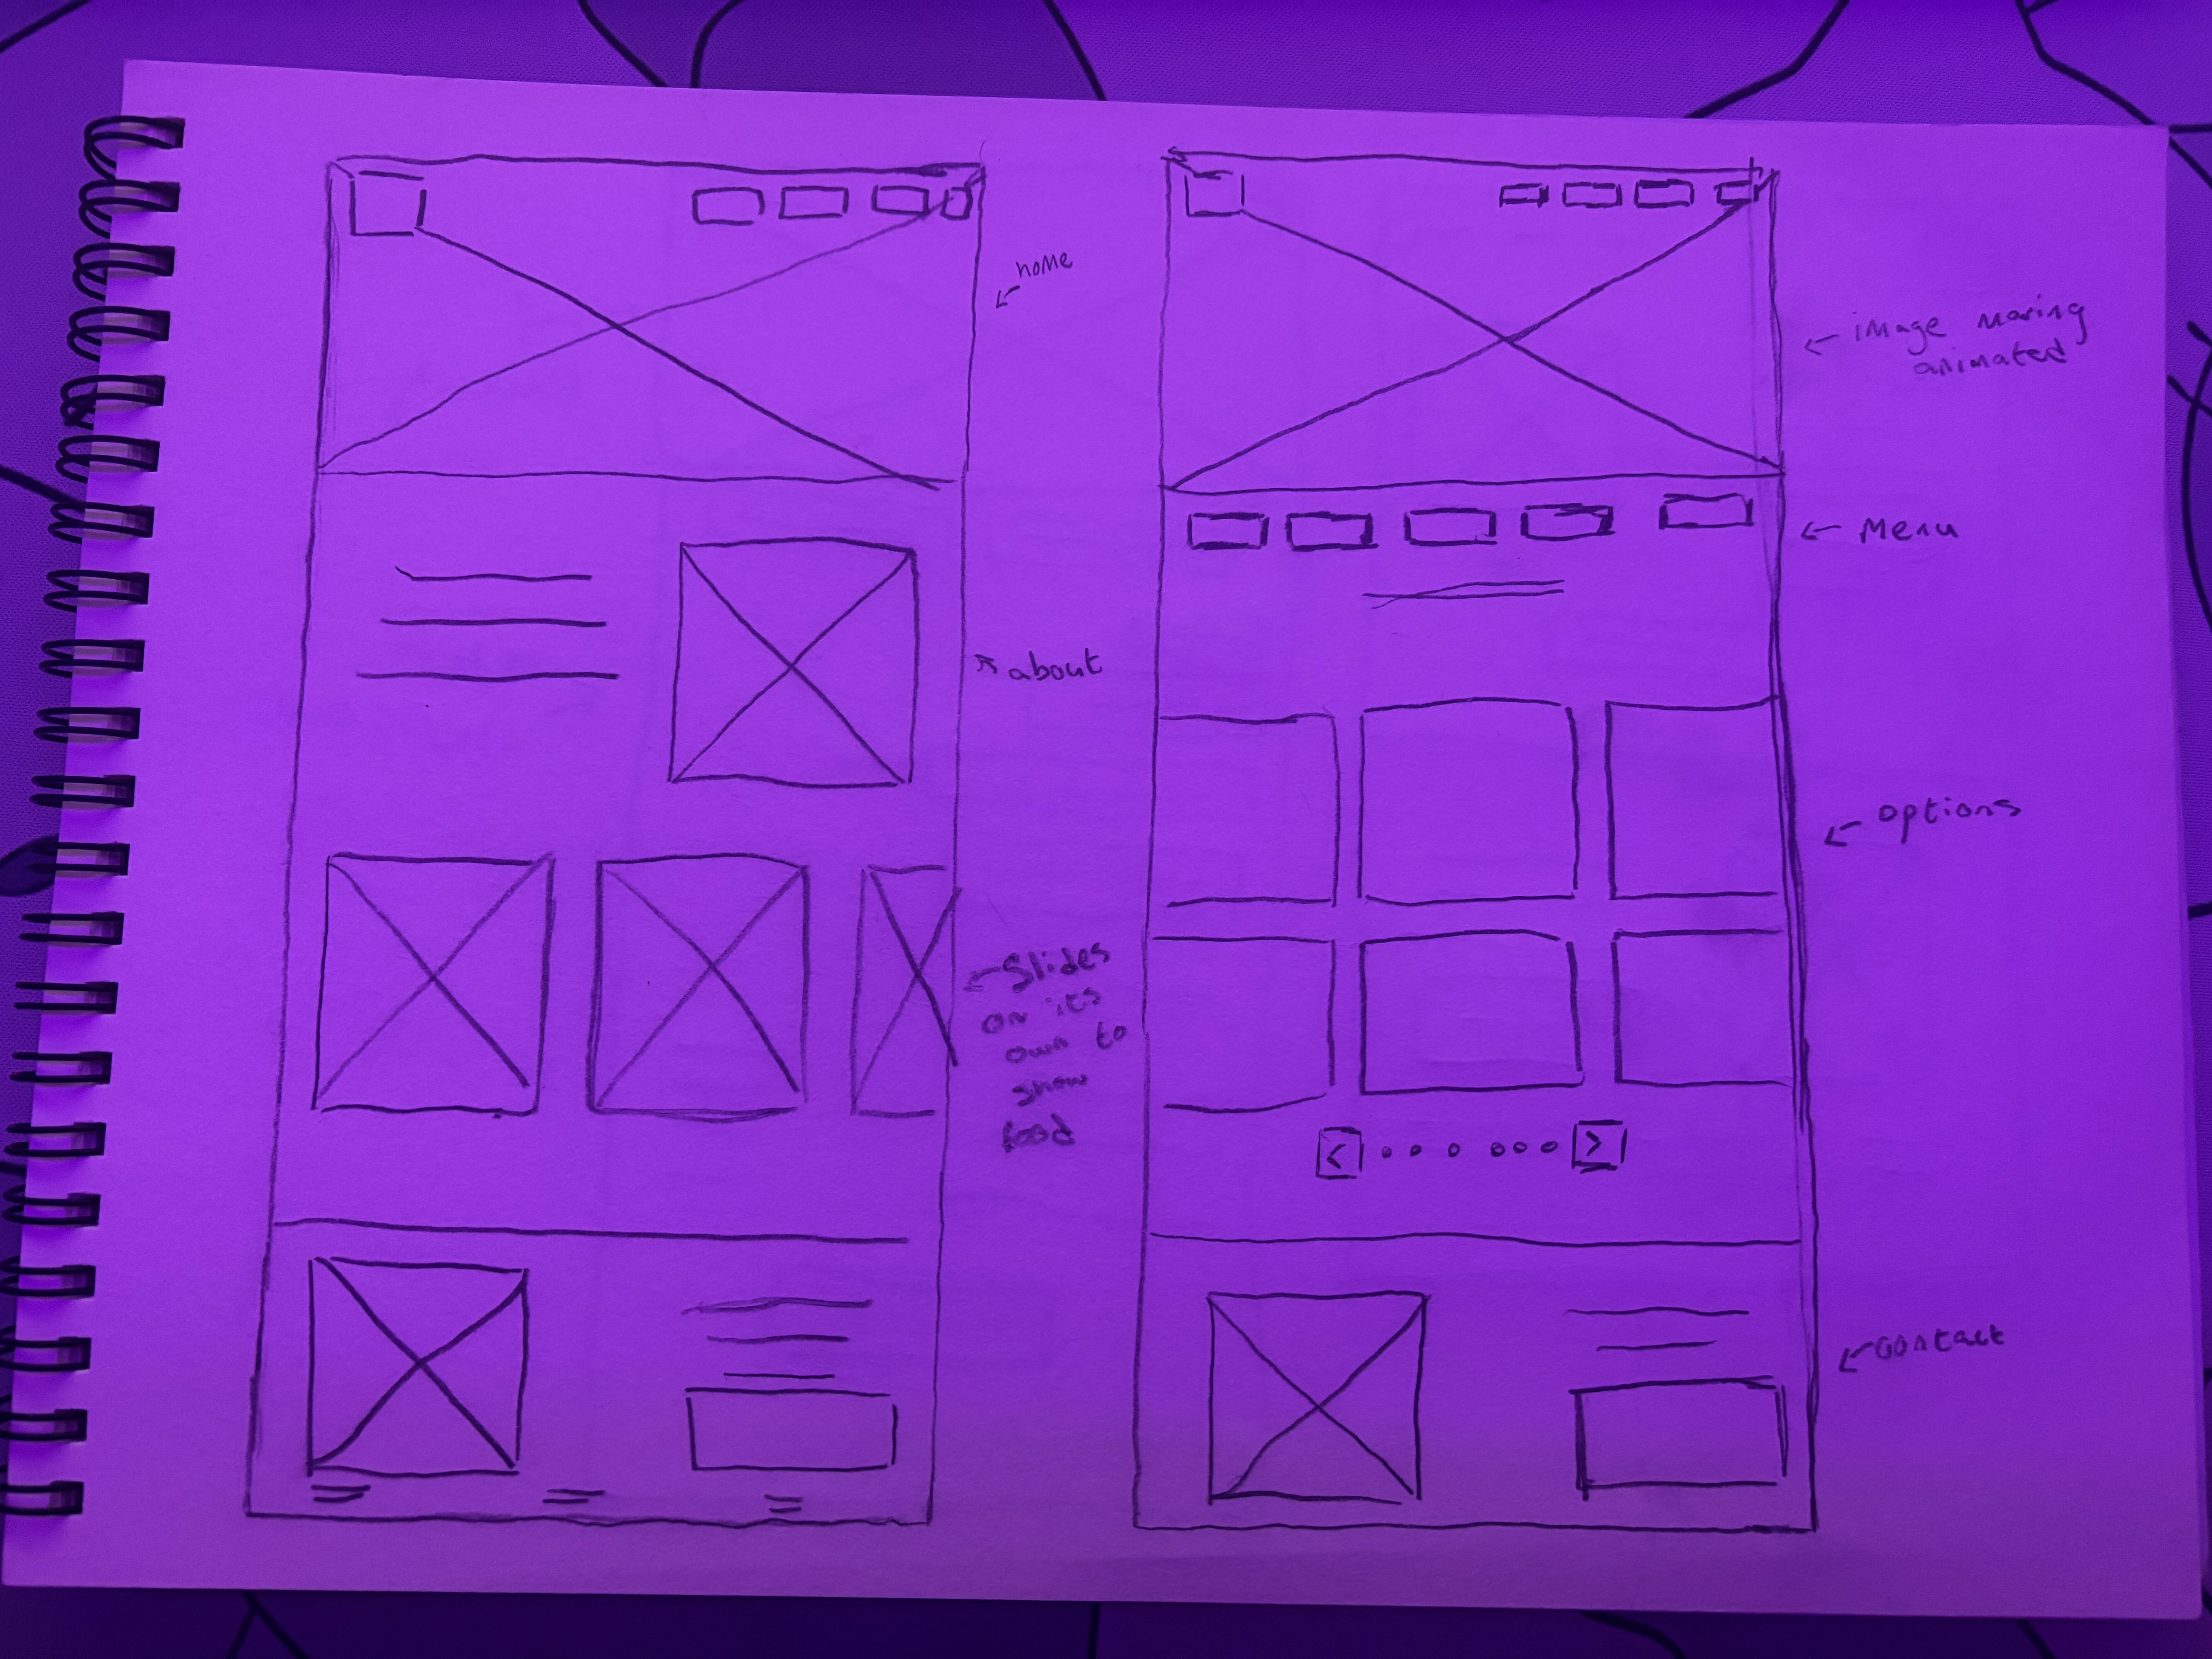 ← home
← about
← Slides
on its
own to
show
food
← image moving
animated
← Menu
← options
< · · · · · · >
← contact